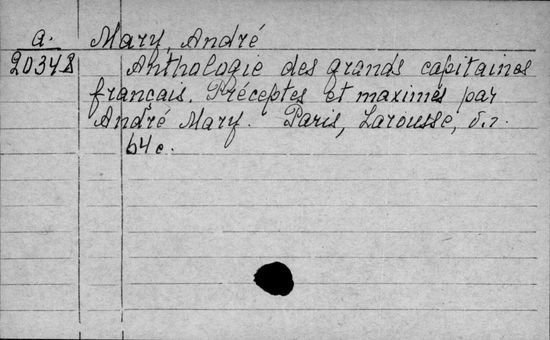 a. Mary, André
20348 Anthologie des grands capitaines
français. Préceptes et maximes par
André Mary. Paris, Larousse, б.г.
64 с.